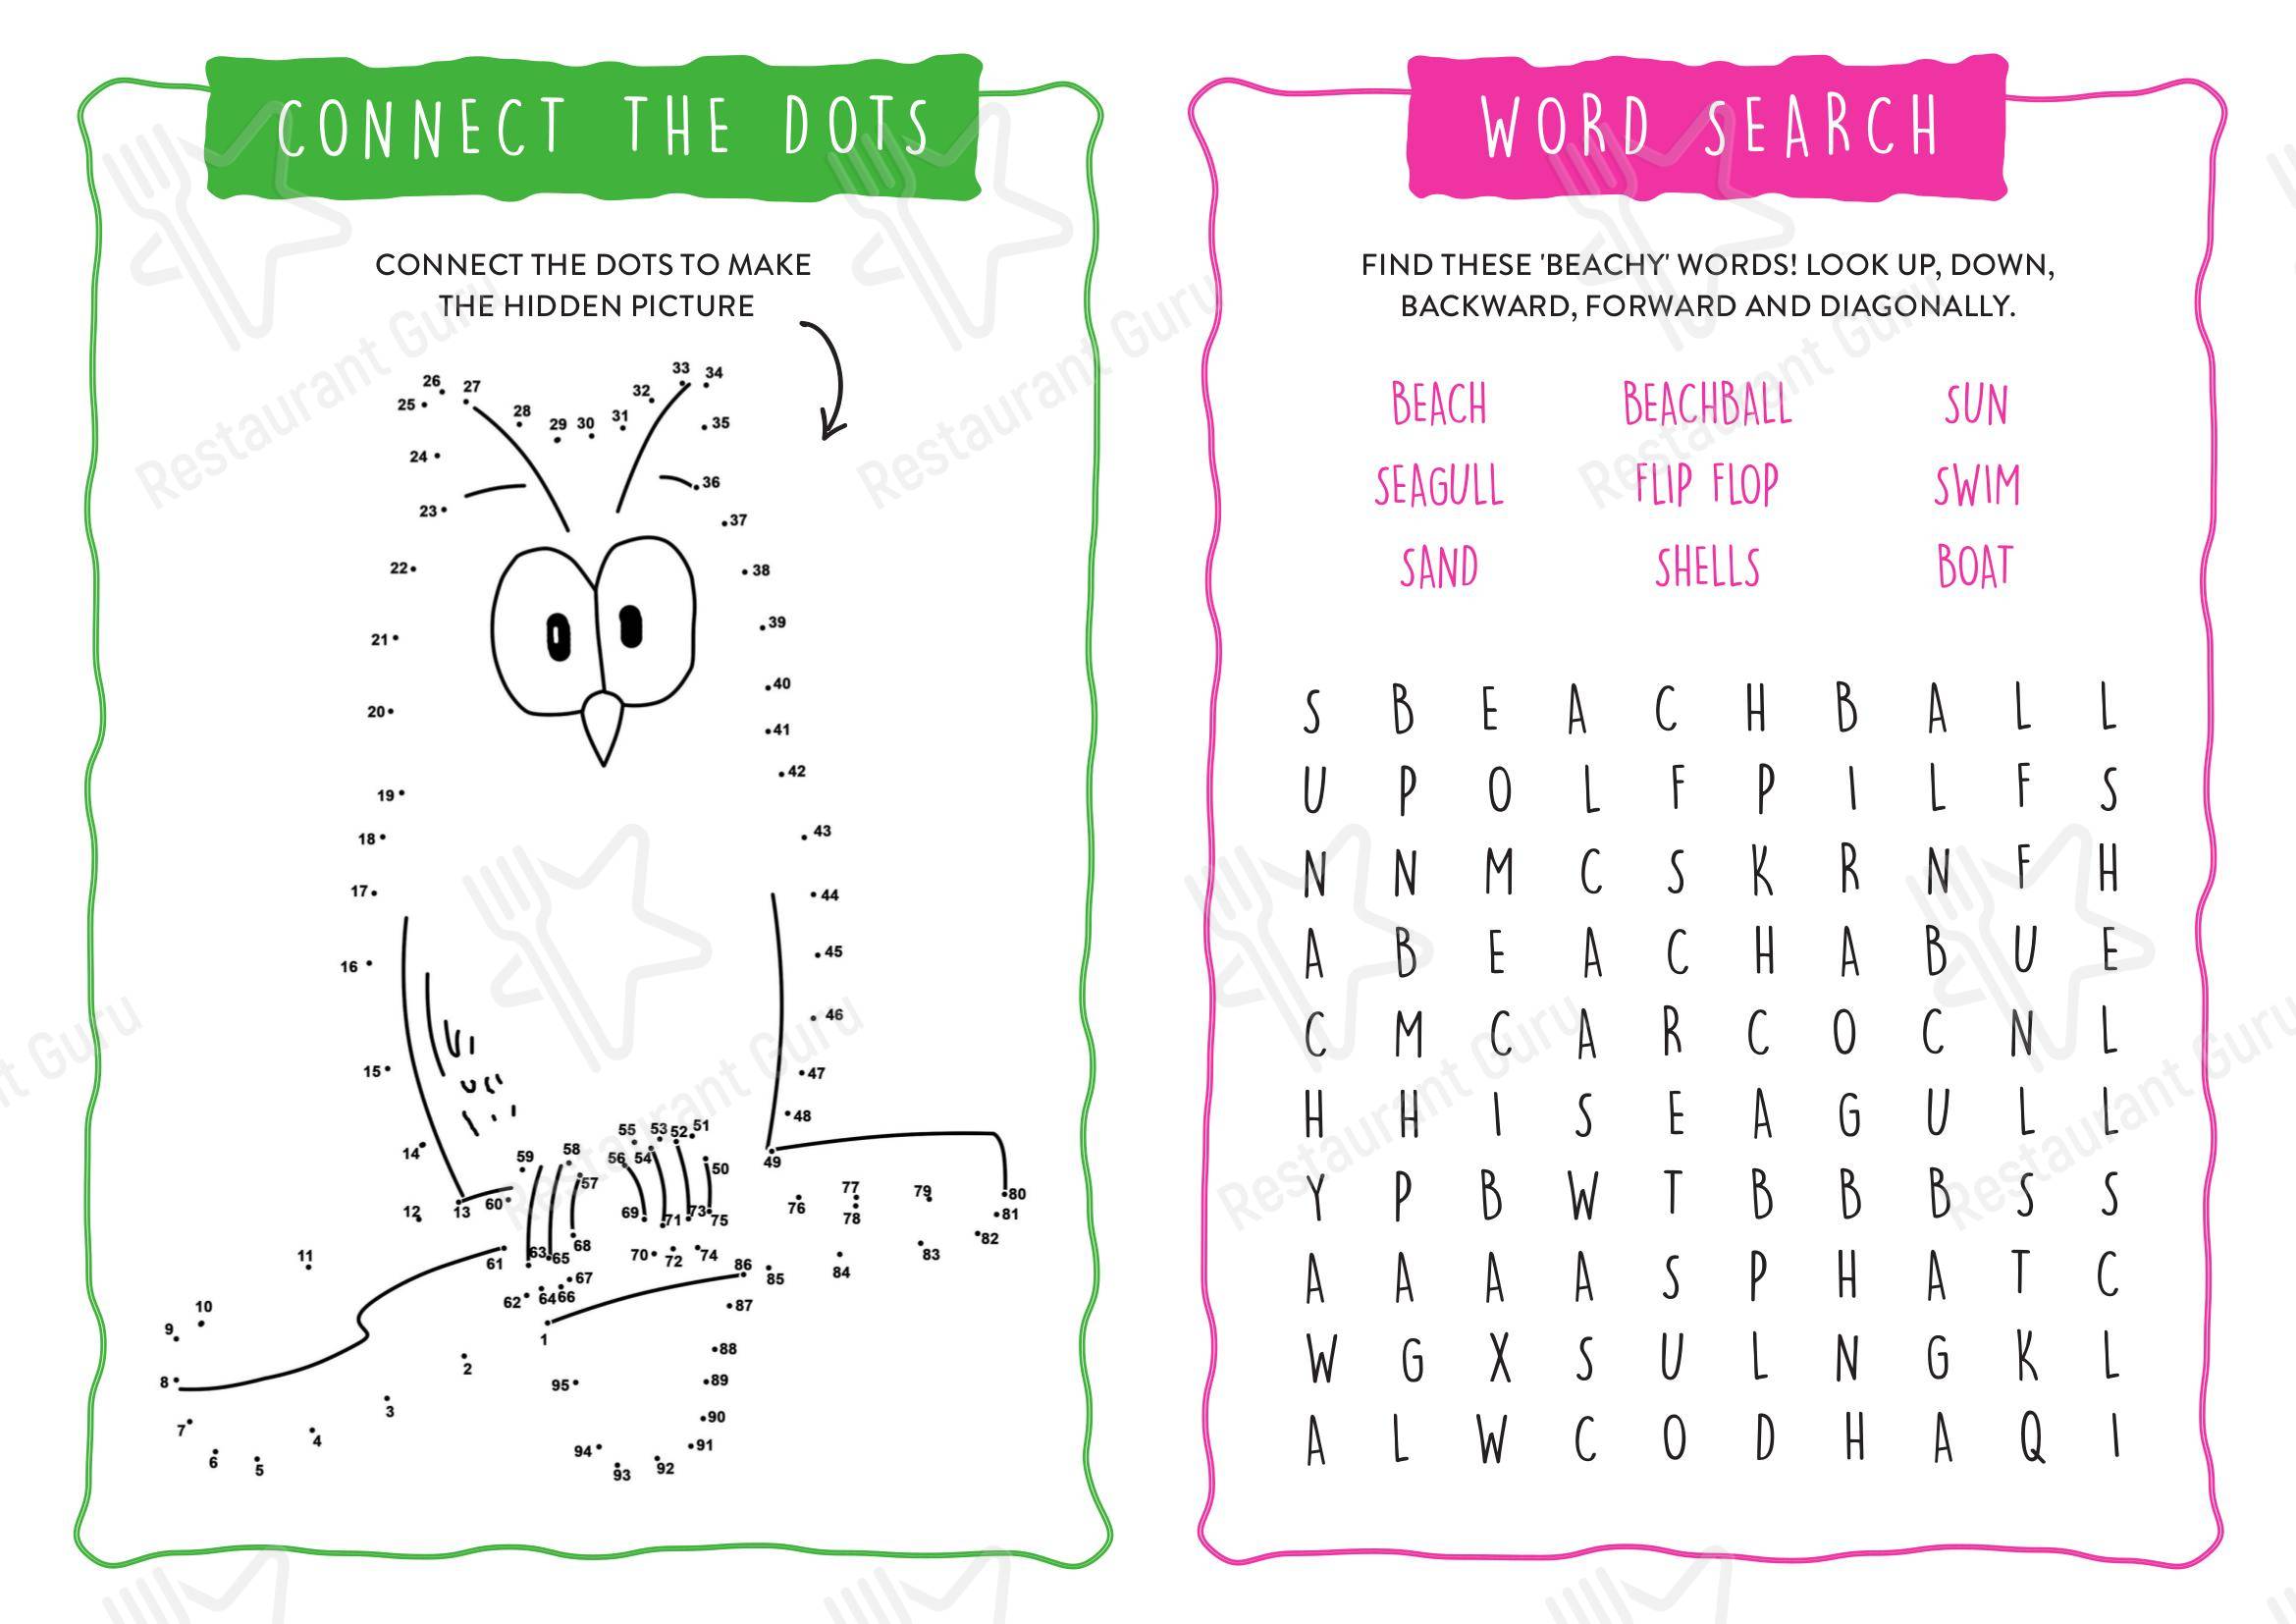 CONNECT THE DOTS
CONNECT THE DOTS TO MAKE
THE HIDDEN PICTURE
33 34
26 27
25 32
28 31 35
29 30
24
36
23 37
22 38
21 39
20 40
41
42
19
18 43
17 44
45
16
46
15 47
48
55 53 52 51
14 59 58 56 54 49
50
57
60 77 79 80
12 13 69 71 73 75 76 78 81
82
11 61 63 65 68 70 72 74 86 83
62 64 66 67 85 84
10 87
9 1
88
8 2 95 89
3 90
7 4 94 91
6 5 93 92
WORD SEARCH
FIND THESE 'BEACHY' WORDS! LOOK UP, DOWN,
BACKWARD, FORWARD AND DIAGONALLY.
BEACH BEACHBALL SUN
SEAGULL FLIP FLOP SWIM
SAND SHELLS BOAT
S B E A C H B A L L
U P O L F P I L F S
N N M C S K R N F H
A B E A C H A B U E
C M C A R C O C N L
H H I S E A G U L L
Y P B W T B B B S S
A A A A S P H A T C
W G X S U L N G K L
A L W C O D H A Q I
Restaurant Guru
Restaurant Guru
Restaurant Guru
nt Guru
Restaurant Guru
Restaurant Guru
Restaurant Guru